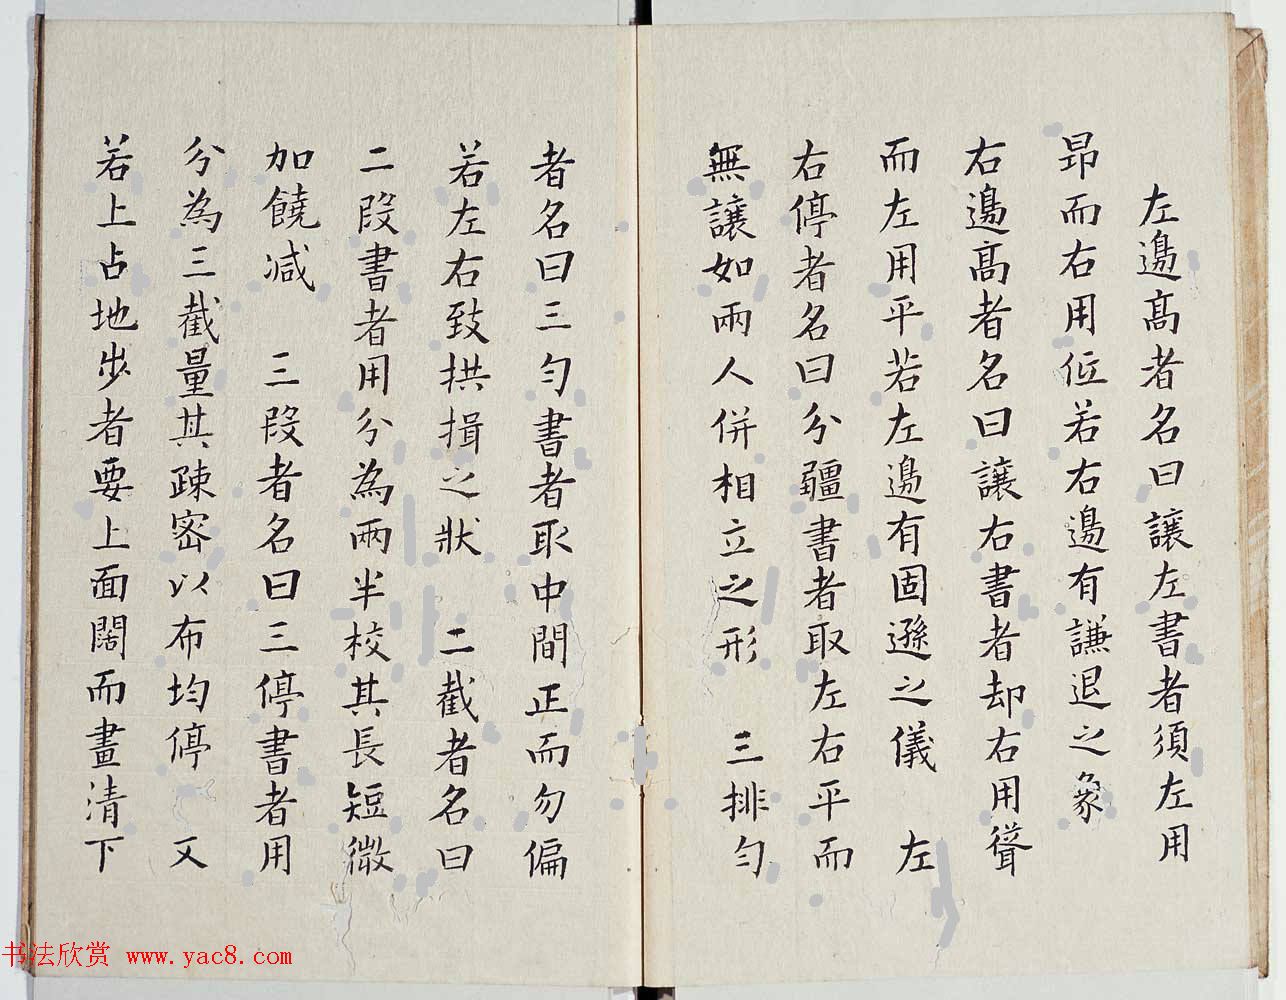 左邊髙者名曰讓左書者須左用
昻而右用低若右邊有謙退之象
右邊髙者名曰讓右書者却右用聳
而左用平若左邊有固遜之儀　左
右停者名曰分疆書者取左右平而
無讓如兩人併相立之形　三排勻
者名曰三勻書者取中間正而勿偏
若左右致拱揖之狀　二截者名曰
二段書者用分為兩半校其長短微
加饒减　三段者名曰三停書者用
分為三截量其疎密以布均停　又
若上占地步者要上面闊而畫清下
书法欣赏 www.yac8.com